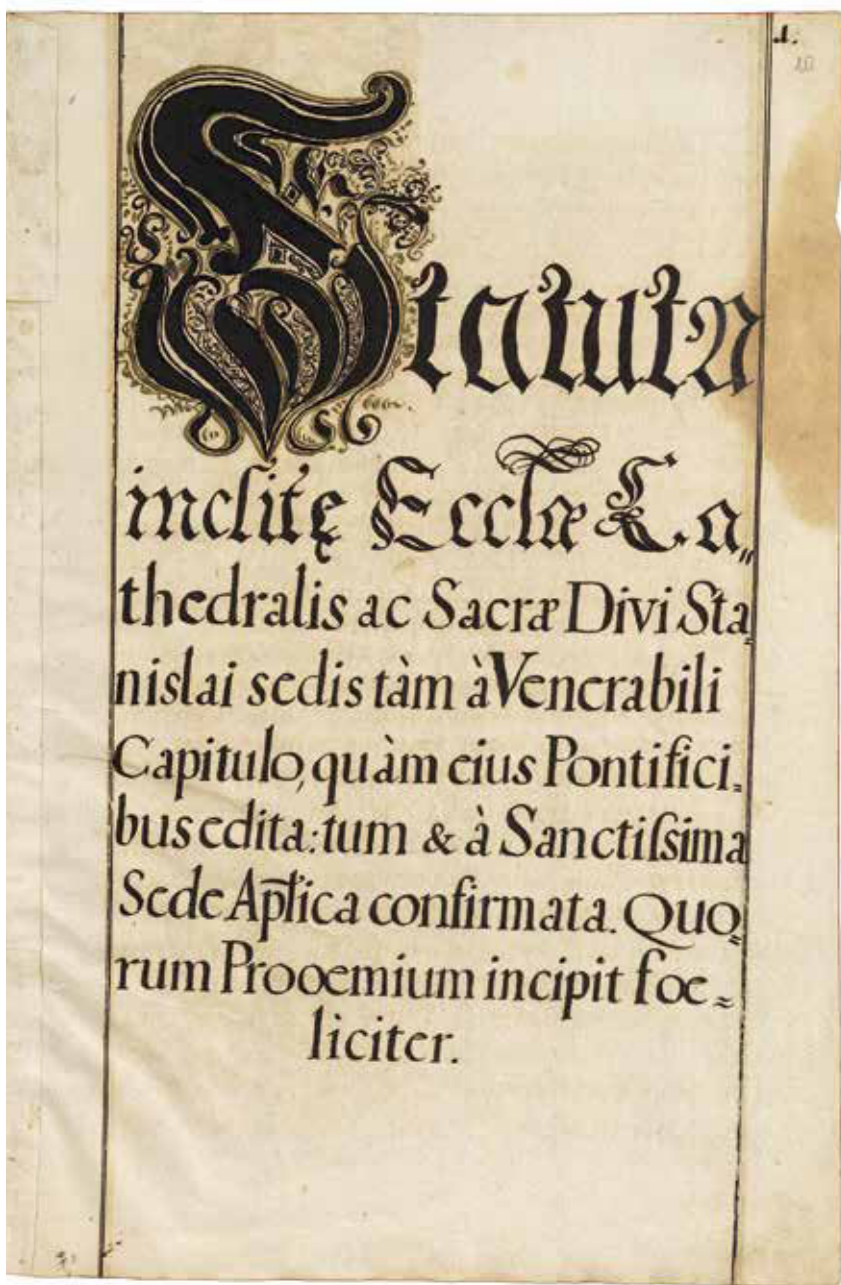 1.
10
Statuta
inclitę Ecclæ Ca„
thedralis ac Sacræ Divi Sta„
nislai sedis tàm à Venerabili
Capitulo, quàm eius Pontifici=
bus edita: tum & à Sanctiſsima
Sede Ap̃lica confirmata. Quo=
rum Prooemium incipit foe=
liciter.